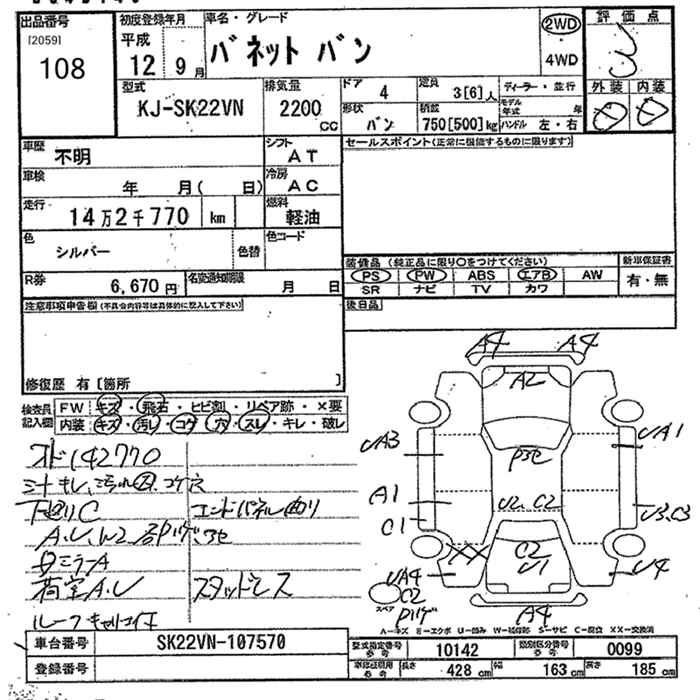 出品番号 初度登録年月 車名・グレード 2WD 評価点
[2059] 平成 バネット バン 3
108 12年 9月 4WD
型式 排気量 ドア 4 定員 3[6]人 ディーラー・並行 外装 内装
KJ-SK22VN 2200cc 形状 バン 積載 750[500]kg モデル年式 年 D D
ハンドル 左・右
車歴 不明 シフト AT セールスポイント(正常に機能するものに限ります)
車検 年 月( 日) 冷房 AC
走行 14万2千770 km 燃料 軽油
色 シルバー 色替 色コード
装備品(純正品に限り〇をつけてください) 新車保証書
R券 6,670円 名変通知期限 月 日 PS PW ABS エアB AW 有・無
SR ナビ TV カワ
注意事項申告欄(不具合内容等は具体的に記入して下さい) 後日品
修復歴 有[箇所 ]
検査員記入欄 FW キズ・飛石・ヒビ割・リペア跡・×要
内装 キズ・汚レ・コゲ・穴・スレ・キレ・破レ
A4 A4
A2
オド142770 UA3 UA1
P3セ
シートキレ、
下廻リC エンドパネル曲リ A1 U2.C2 U3.C3
C1
A.U.W2
ミラーA C2 U1 UA4 U4
荷室A.U スタッドレス C2
スペア
A4
ルーフキャリコイエ
A-キズ E-エクボ U-凹み W-補修跡 S-サビ C-腐食 XX-交換済
車台番号 SK22VN-107570 型式指定番号 参考 10142 類別区分番号 参考 0099
登録番号 車検証記載 参考 長さ 428 cm 幅 163 cm 高さ 185 cm